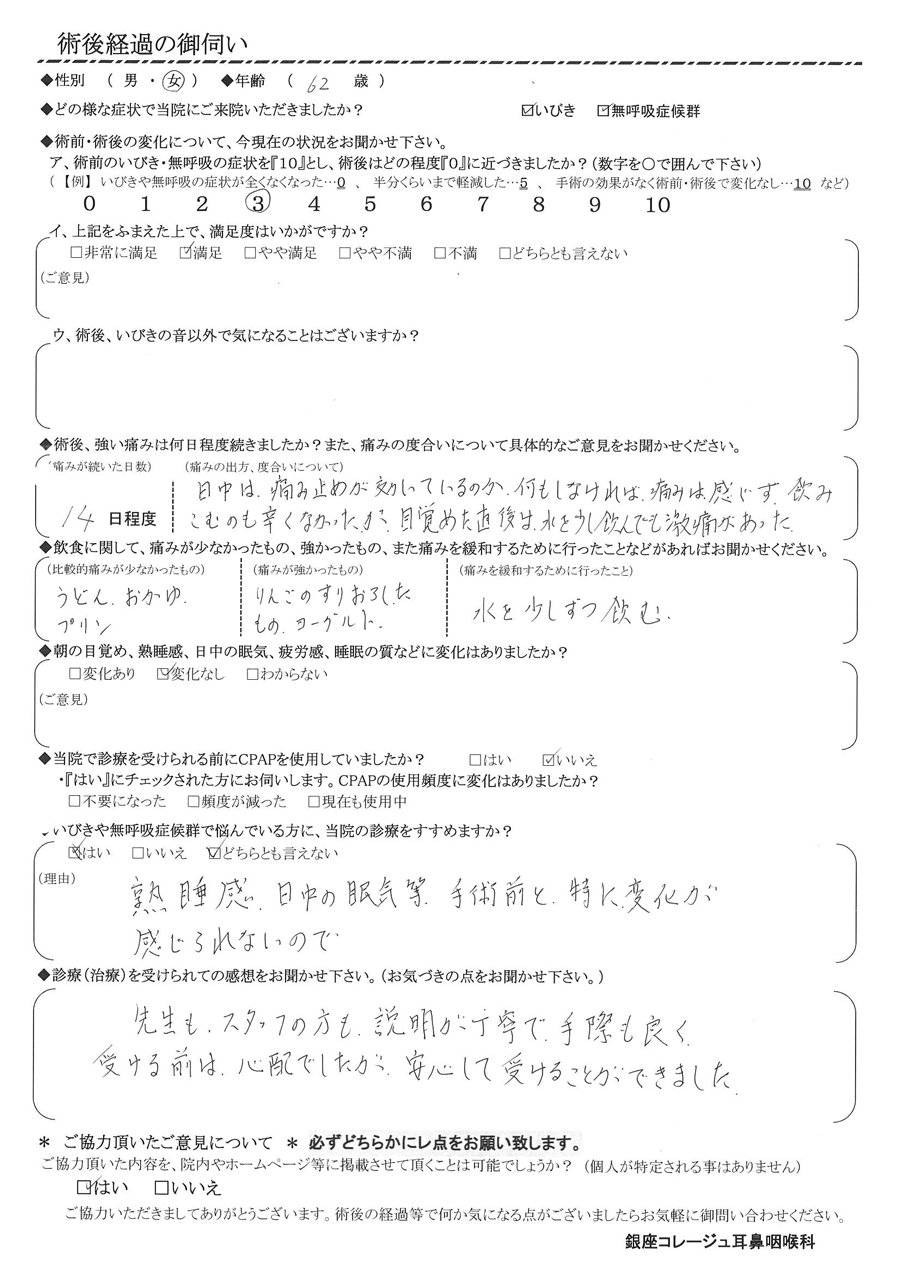 術後経過の御伺い
◆性別 ( 男 ・ 女 ) ◆年齢 ( 62 歳 )
◆どの様な症状で当院にご来院いただきましたか? ☑いびき ☑無呼吸症候群
◆術前・術後の変化について、今現在の状況をお聞かせ下さい。
ア、術前のいびき・無呼吸の症状を『10』とし、術後はどの程度『0』に近づきましたか?(数字を○で囲んで下さい)
(【例】いびきや無呼吸の症状が全くなくなった…0 、 半分くらいまで軽減した…5 、 手術の効果がなく術前・術後で変化なし…10 など)
0 1 2 3 4 5 6 7 8 9 10
イ、上記をふまえた上で、満足度はいかがですか?
□非常に満足 ☑満足 □やや満足 □やや不満 □不満 □どちらとも言えない
(ご意見)
ウ、術後、いびきの音以外で気になることはございますか?
◆術後、強い痛みは何日程度続きましたか?また、痛みの度合いについて具体的なご意見をお聞かせください。
(痛みが続いた日数) (痛みの出方、度合いについて)
日中は、痛み止めが効いているのか、何もしなければ、痛みは感じず、飲み
14 日程度 こむのも辛くなかったが、目覚めた直後は、水を少し飲んでも激痛があった。
◆飲食に関して、痛みが少なかったもの、強かったもの、また痛みを緩和するために行ったことなどがあればお聞かせください。
(比較的痛みが少なかったもの) (痛みが強かったもの) (痛みを緩和するために行ったこと)
うどん、おかゆ、 りんごのすりおろした 水を少しずつ飲む。
プリン もの、ヨーグルト、
◆朝の目覚め、熟睡感、日中の眠気、疲労感、睡眠の質などに変化はありましたか?
□変化あり ☑変化なし □わからない
(ご意見)
◆当院で診療を受けられる前にCPAPを使用していましたか? □はい ☑いいえ
・『はい』にチェックされた方にお伺いします。CPAPの使用頻度に変化はありましたか?
□不要になった □頻度が減った □現在も使用中
いびきや無呼吸症候群で悩んでいる方に、当院の診療をすすめますか?
☒はい □いいえ ☑どちらとも言えない
(理由)
熟睡感、日中の眠気等、手術前と、特に変化が
感じられないので
◆診療(治療)を受けられての感想をお聞かせ下さい。(お気づきの点をお聞かせ下さい。)
先生も、スタッフの方も、説明が丁寧で、手際も良く、
受ける前は、心配でしたが、安心して受けることができました。
* ご協力頂いたご意見について * 必ずどちらかにレ点をお願い致します。
ご協力頂いた内容を、院内やホームページ等に掲載させて頂くことは可能でしょうか? (個人が特定される事はありません)
☑はい □いいえ
ご協力いただきましてありがとうございます。術後の経過等で何か気になる点がございましたらお気軽に御問い合わせください。
銀座コレージュ耳鼻咽喉科